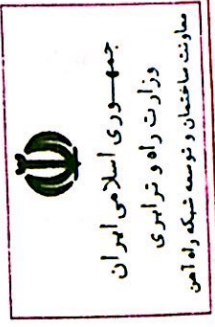 جمهوری اسلامی ایران
وزارت راه و ترابری
معاونت ساختمان و توسعه شبکه راه آهن